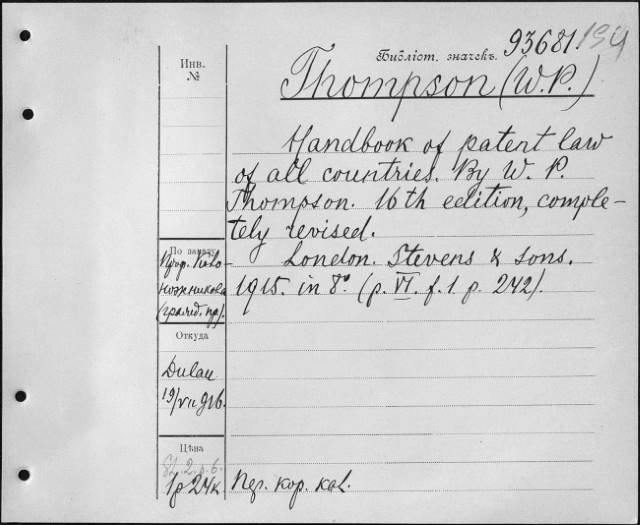 93681
Библіот. значекъ.
Инв.
№
Thompson (W.P.)
Handbook of patent law
of all countries. By W. P.
Thompson. 16th edition, comple-
tely revised.
London. Stevens & Sons.
1915. in 8° (p. VI. f. 1. p. 242).
По заказу
Проф.
(гражд. пр.).
Откуда
Dulau
19/VII 916.
Цѣна
1р 24к.
Пер. кор. кол.